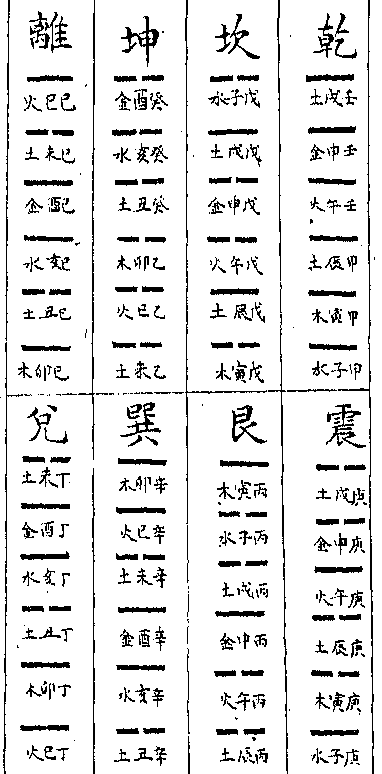 乾
壬戌土
壬申金
壬午火
甲辰土
甲寅木
甲子水
坎
戊子水
戊戌土
戊申金
戊午火
戊辰土
戊寅木
坤
癸酉金
癸亥水
癸丑土
乙卯木
乙巳火
乙未土
離
己巳火
己未土
己酉金
己亥水
己丑土
己卯木
震
庚戌土
庚申金
庚午火
庚辰土
庚寅木
庚子水
艮
丙寅木
丙子水
丙戌土
丙申金
丙午火
丙辰土
巽
辛卯木
辛巳火
辛未土
辛酉金
辛亥水
辛丑土
兌
丁未土
丁酉金
丁亥水
丁丑土
丁卯木
丁巳火